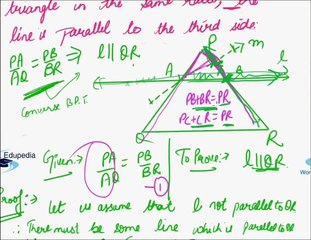 triangle in the same ratio, the
line is parallel to the third side.
PA/AQ = PB/BR ⇒ l || QR
Converse B.P.T.
P
m
A
B
l
PB+BR=PR
PC+CR=PR
Q
R
Edupedia
Given:- PA/AQ = PB/BR -①
To Prove:- l || QR
Proof:- let us assume that l not parallel to QR
∴ There must be some line which is parallel to QR